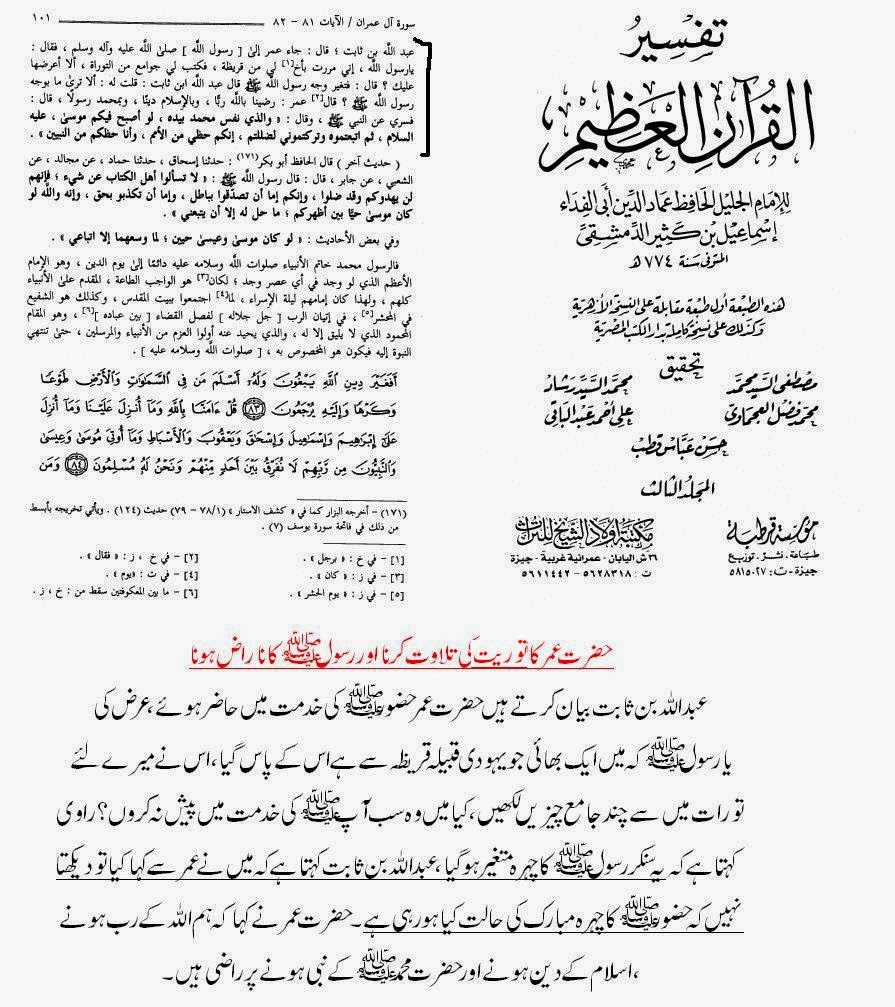 سورة آل عمران / الآيات ٨١ – ٨٢
١٠١
عبد اللَّه بن ثابت ؛ قال : جاء عمر إلىٰ [ رسول اللَّه ] صلىٰ اللَّه عليه وآله وسلم ، فقال :
يارسول اللَّه ، إني مررت بأخ[١] لي من قريظة ، فكتب لي جوامع من التوراة ، ألا أعرضها
عليك ؟ قال : فتغير وجه رسول اللَّه ﷺ قال عبد اللَّه ابن ثابت : قلت له : ألا ترىٰ ما بوجه
رسول اللَّه ﷺ ؟ قال[٢] عمر : رضينا باللَّه ربًّا ، وبالإسلام دينًا ، وبمحمد رسولًا ، قال :
فسري عن النبي ﷺ ، وقال : « والذي نفس محمد بيده ، لو أصبح فيكم موسىٰ ، عليه
السلام ، ثم اتبعتموه وتركتموني لضللتم ، إنكم حظي من الأمم ، وأنا حظكم من النبيين » .
( حديث آخر ) قال الحافظ أبو بكر(١٧١) : حدثنا إسحاق ، حدثنا حماد ، عن مجالد ، عن
الشعبي ، عن جابر ، قال : قال رسول اللَّه ﷺ : « لا تسألوا أهل الكتاب عن شيء ؛ فإنهم
لن يهدوكم وقد ضلوا ، وإنكم إما أن تصدقوا بباطل ، وإما أن تكذبو بحق ، وإنه واللَّه لو
كان موسىٰ حيًّا بين أظهركم ؛ ما حل له إلا أن يتبعني » .
وفي بعض الأحاديث : « لو كان موسىٰ وعيسىٰ حيين ؛ لما وسعهما إلا اتباعي » .
فالرسول محمد خاتم الأنبياء صلوات اللَّه وسلامه عليه دائمًا إلىٰ يوم الدين ، وهو الإمام
الأعظم الذي لو وجد في أي عصر وجد ؛ لكان[٣] هو الواجب الطاعة ، المقدم علىٰ الأنبياء
كلهم ، ولهذا كان إمامهم ليلة الإسراء ، لما[٤] اجتمعوا ببيت المقدس ، وكذلك هو الشفيع
في المحشر[٥] ، في إتيان الرب [ جل جلاله ] لفصل القضاء [ بين عباده ][٦] ، وهو المقام
المحمود الذي لا يليق إلا له ، والذي يحيد عنه أولوا العزم من الأنبياء والمرسلين ، حتىٰ تنتهي
النبوة إليه فيكون هو المخصوص به ، [ صلوات اللَّه وسلامه عليه ] .
أَفَغَيْرَ دِينِ ٱللَّهِ يَبْغُونَ وَلَهُۥٓ أَسْلَمَ مَن فِى ٱلسَّمَٰوَٰتِ وَٱلْأَرْضِ طَوْعًا
وَكَرْهًا وَإِلَيْهِ يُرْجَعُونَ ﴿٨٣﴾ قُلْ ءَامَنَّا بِٱللَّهِ وَمَآ أُنزِلَ عَلَيْنَا وَمَآ أُنزِلَ
عَلَىٰٓ إِبْرَٰهِيمَ وَإِسْمَٰعِيلَ وَإِسْحَٰقَ وَيَعْقُوبَ وَٱلْأَسْبَاطِ وَمَآ أُوتِىَ مُوسَىٰ وَعِيسَىٰ
وَٱلنَّبِيُّونَ مِن رَّبِّهِمْ لَا نُفَرِّقُ بَيْنَ أَحَدٍ مِّنْهُمْ وَنَحْنُ لَهُۥ مُسْلِمُونَ ﴿٨٤﴾ وَمَن
(١٧١) – أخرجه البزار كما في « كشف الاستار » (٧٨/١ – ٧٩) حديث (١٢٤) . ويأتي تخريجه بأبسط
من ذلك في فاتحة سورة يوسف (٧) .
[١] – في خ : « برجل » .
[٢] – في خ ، ز : « فقال » .
[٣] – في ز : « كان » .
[٤] – في ت : «يوم» .
[٥] – في ز : « يوم الحشر » .
[٦] – ما بين المعكوفتين سقط من : خ ، ز .
تفسير
القرآن العظيم
للإمام الجليل الحافظ عماد الدين أبي الفداء
إسماعيل بن كثير الدمشقي
المتوفى سنة ٧٧٤ هـ
هذه الطبعة أول طبعة مقابلة على النسخة الأزهرية
وكذلك على نسخة كاملة بدار الكتب المصرية
تحقيق
مصطفى السيد محمد
محمد السيد رشاد
محمد فضل العجماوي
علي أحمد عبد الباقي
حسن عباس قطب
المجلد الثالث
مؤسسة قرطبة
طباعة . نشر . توزيع
جيزة - ت : ٥٨١٥٠٢٧
مكتبة أولاد الشيخ للتراث
٣٦ ش اليابان - عمرانية غربية - جيزة
ت : ٥٦٢٨٣١٨ - ٥٦١١٤٤٢
حضرت عمر کا توریت کی تلاوت کرنا اور رسول ﷺ کا ناراض ہونا
عبداللہ بن ثابت بیان کرتے ہیں حضرت عمر حضور ﷺ کی خدمت میں حاضر ہوئے، عرض کی
یا رسول ﷺ کہ میں ایک بھائی جو یہودی قبیلہ قریظہ سے ہے اس کے پاس گیا، اس نے میرے لئے
تورات میں سے چند جامع چیزیں لکھیں، کیا میں وہ سب آپ ﷺ کی خدمت میں پیش نہ کروں؟ راوی
کہتا ہے کہ یہ سنکر رسول ﷺ کا چہرہ متغیر ہو گیا، عبداللہ بن ثابت کہتا ہے کہ میں نے عمر سے کہا کیا تو دیکھتا
نہیں کہ حضور ﷺ کا چہرہ مبارک کی حالت کیا ہو رہی ہے۔ حضرت عمر نے کہا کہ ہم اللہ کے رب ہونے
،اسلام کے دین ہونے اور حضرت محمد ﷺ کے نبی ہونے پر راضی ہیں۔